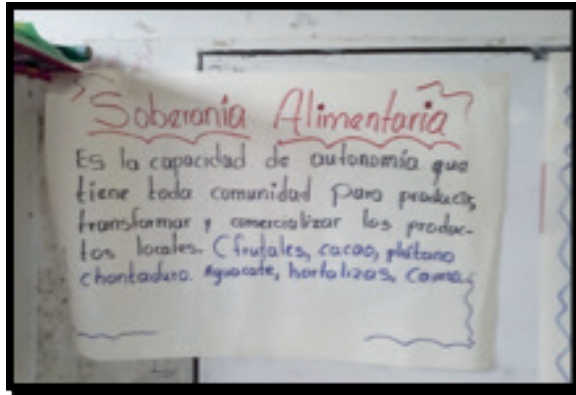 Soberanía Alimentaria
Es la capacidad de autonomía que
tiene toda comunidad para producir,
transformar y comercializar los produc-
tos locales. (frutales, cacao, plátano
chontaduro. Aguacate, hortalizas,